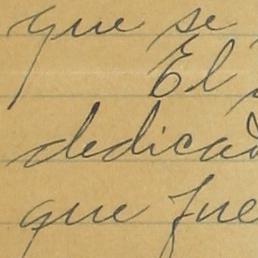 que se
El
dedicad
que fue